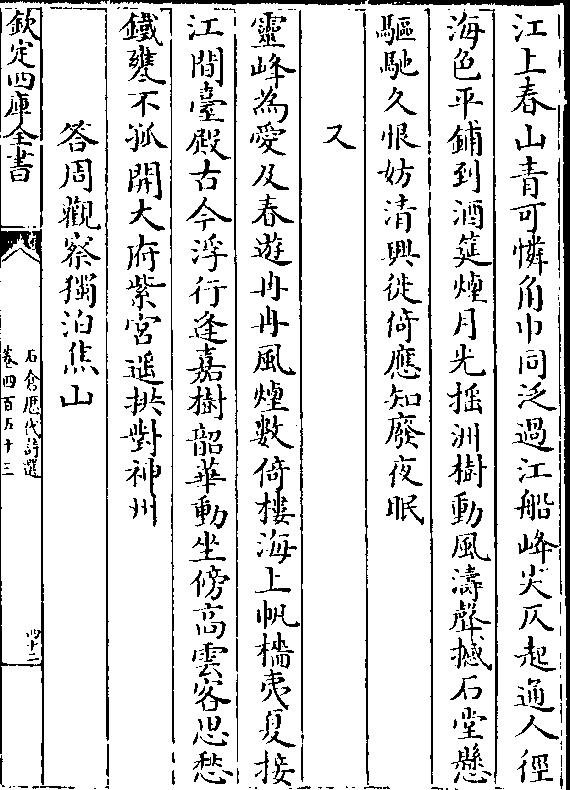 江上春山青可憐角巾同泛過江船峰尖仄起通人徑
海色平鋪到酒筵煙月光揺洲樹動風濤聲撼石堂懸
驅馳久恨妨清興徙倚應知廢夜眠
又
靈峰為愛及春遊冉冉風煙數倚樓海上帆檣夷夏接
江間臺殿古今浮行逢嘉樹韶華動坐傍高雲客思愁
鐵甕不孤開大府紫宮遥拱對神州
答周觀察獨泊焦山
欽定四庫全書
石倉歴代詩選
卷四百五十三
四十二